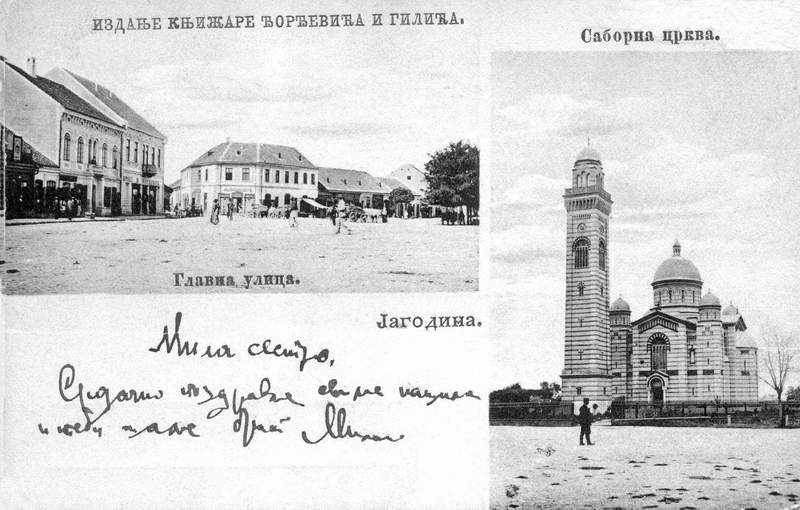 ИЗДАЊЕ КЊИЖАРЕ ЂОРЂЕВИЋА И ГИЛИЋА.
Саборна црква.
Главна улица.
Јагодина.
Мила сестро,
Срдачно поздравље свима нашима
и теби шаље брат